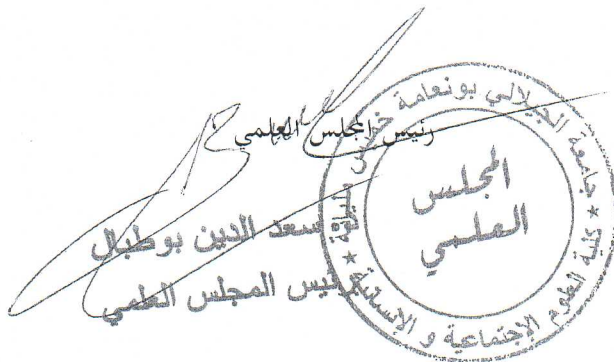 رئيس المجلس العلمي
جامعة الجيلالي بونعامة خميس مليانة * كلية العلوم الإجتماعية و الإنسانية *
المجلس
العلمي
سعد الدين بوطبال
رئيس المجلس العلمي